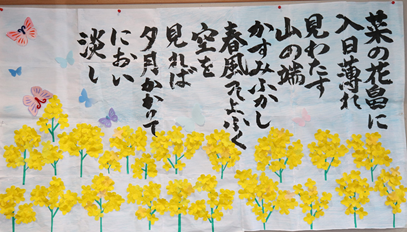 菜の花畠に
入日薄れ
見わたす
山の端
かすみふかし
春風そよふく
空を
見れば
夕月かかりて
におい
淡し